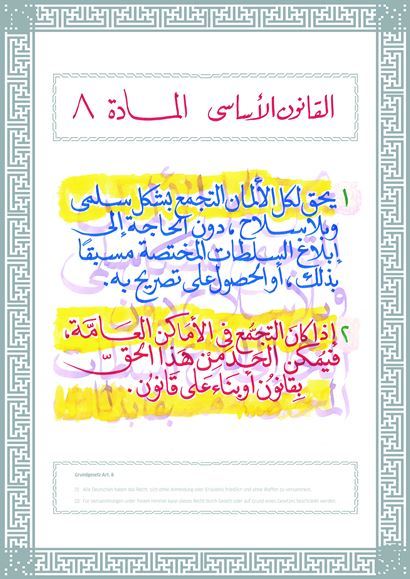 القانون الأساسى المادة ٨
١ يحق لكل الألمان التجمع بشكل سلمى
وبلا سلاح، دون الحاجة إلى
إبلاغ السلطات المختصة مسبقًا
بذلك، أو الحصول على تصريح به.
٢ إذا كان التجمّع فى الأماكن العامّة،
فيمكن الحد من هذا الحقّ
بقانون أو بناء على قانون.
Grundgesetz Art. 8
(1) Alle Deutschen haben das Recht, sich ohne Anmeldung oder Erlaubnis friedlich und ohne Waffen zu versammeln.
(2) Für Versammlungen unter freiem Himmel kann dieses Recht durch Gesetz oder auf Grund eines Gesetzes beschränkt werden.